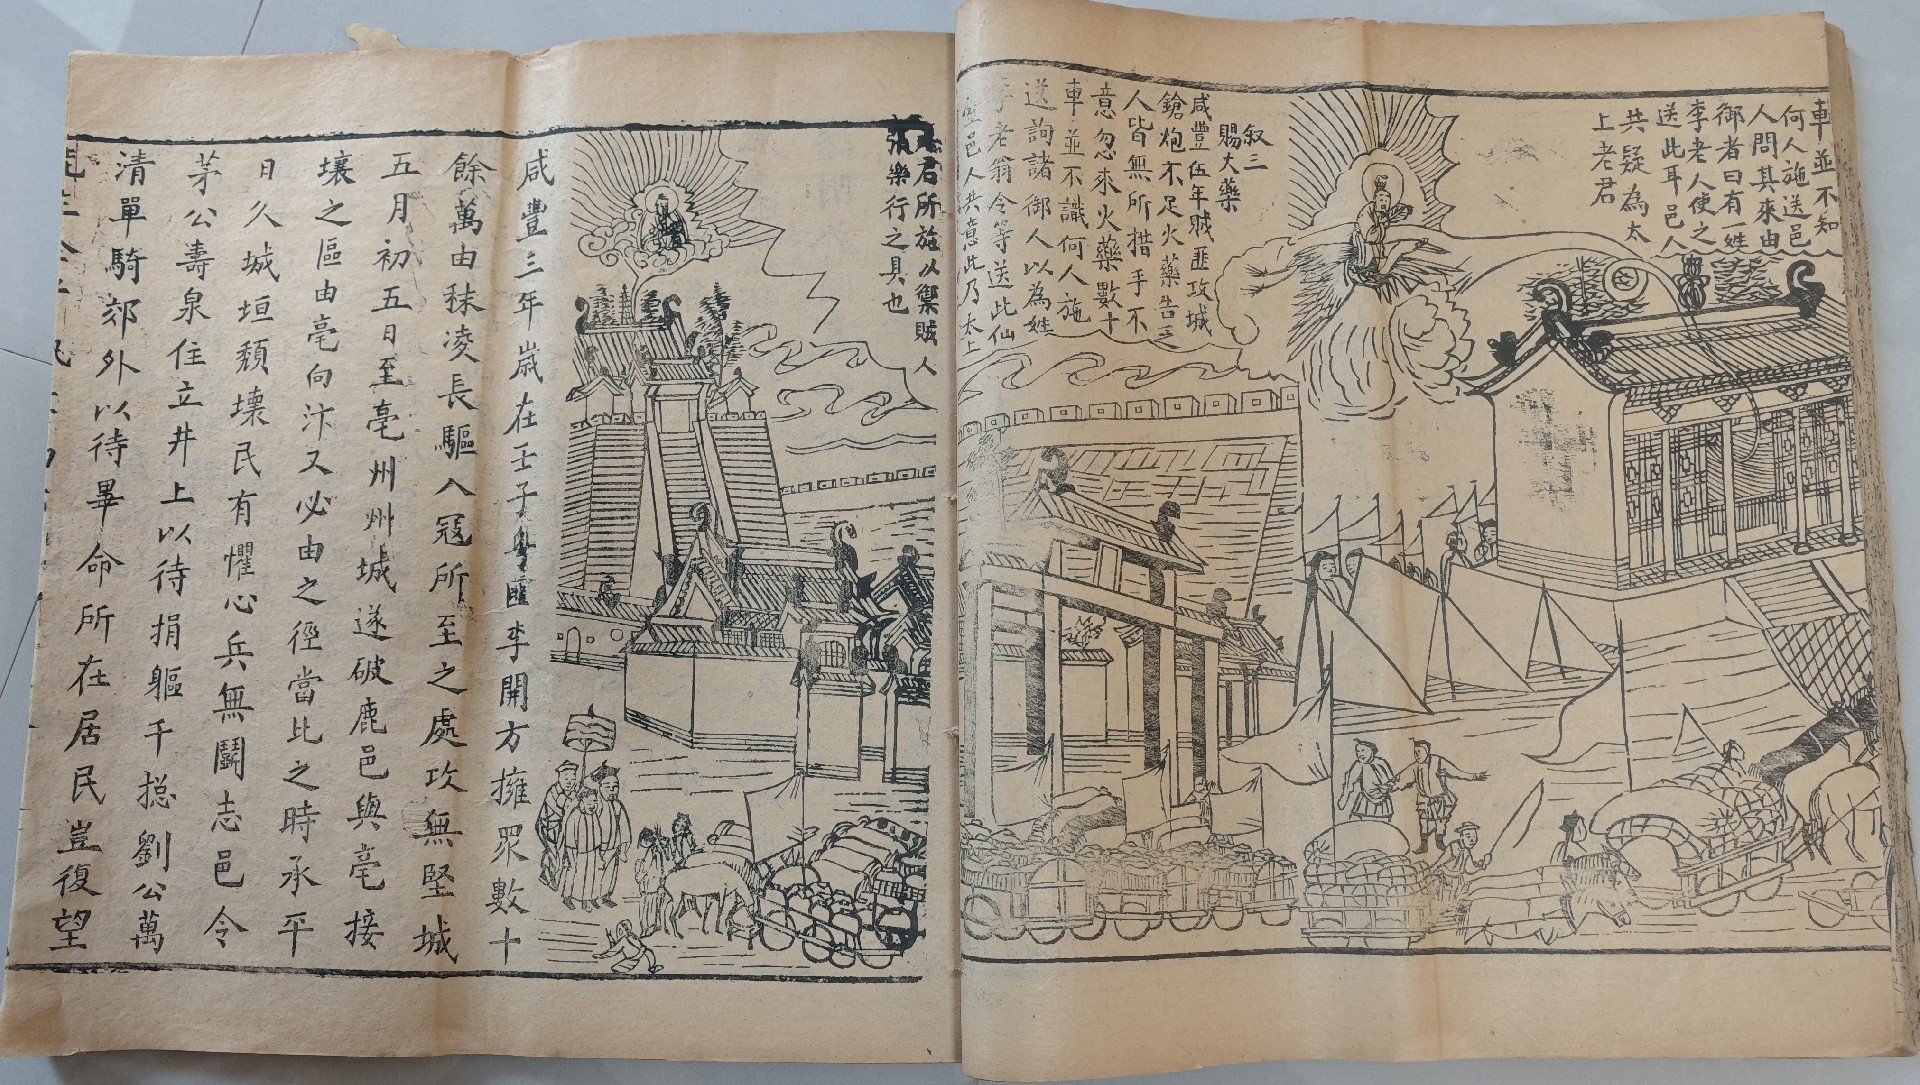 車並不知
何人施送邑
人問其來由
御者曰有一姓
李老人使之
送此耳邑人
共疑為太
上老君
叙三
賜火藥
咸豐伍年賊匪攻城
鎗炮不足火藥告乏
人皆無所措手不
意忽來火藥數十
車並不識何人施
送詢諸御人以為姓
李老翁令等送此仙
邑人共意此乃太上
老君所施以禦賊人
張樂行之具也
咸豐三年嵗在壬子粵匪李開方擁眾數十
餘萬由秣凌長驅入冦所至之處攻無堅城
五月初五日至亳州州城遂破鹿邑與亳接
壤之區由亳向汴又必由之徑當比之時承平
日久城垣頹壞民有懼心兵無鬪志邑令
茅公壽泉住立井上以待捐軀千揔劉公萬
清單騎郊外以待畢命所在居民豈復望